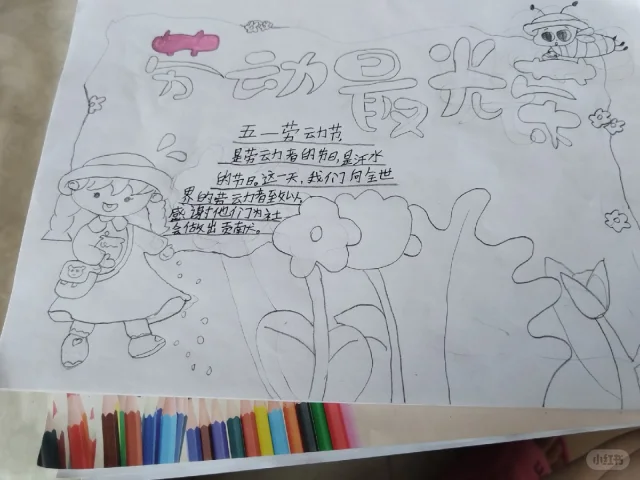 劳动最光荣
五一劳动节
是劳动者的节日,是汗水
的节日。这一天,我们向全世
界的劳动者致以
感谢他们为社
会做出贡献。
小红书